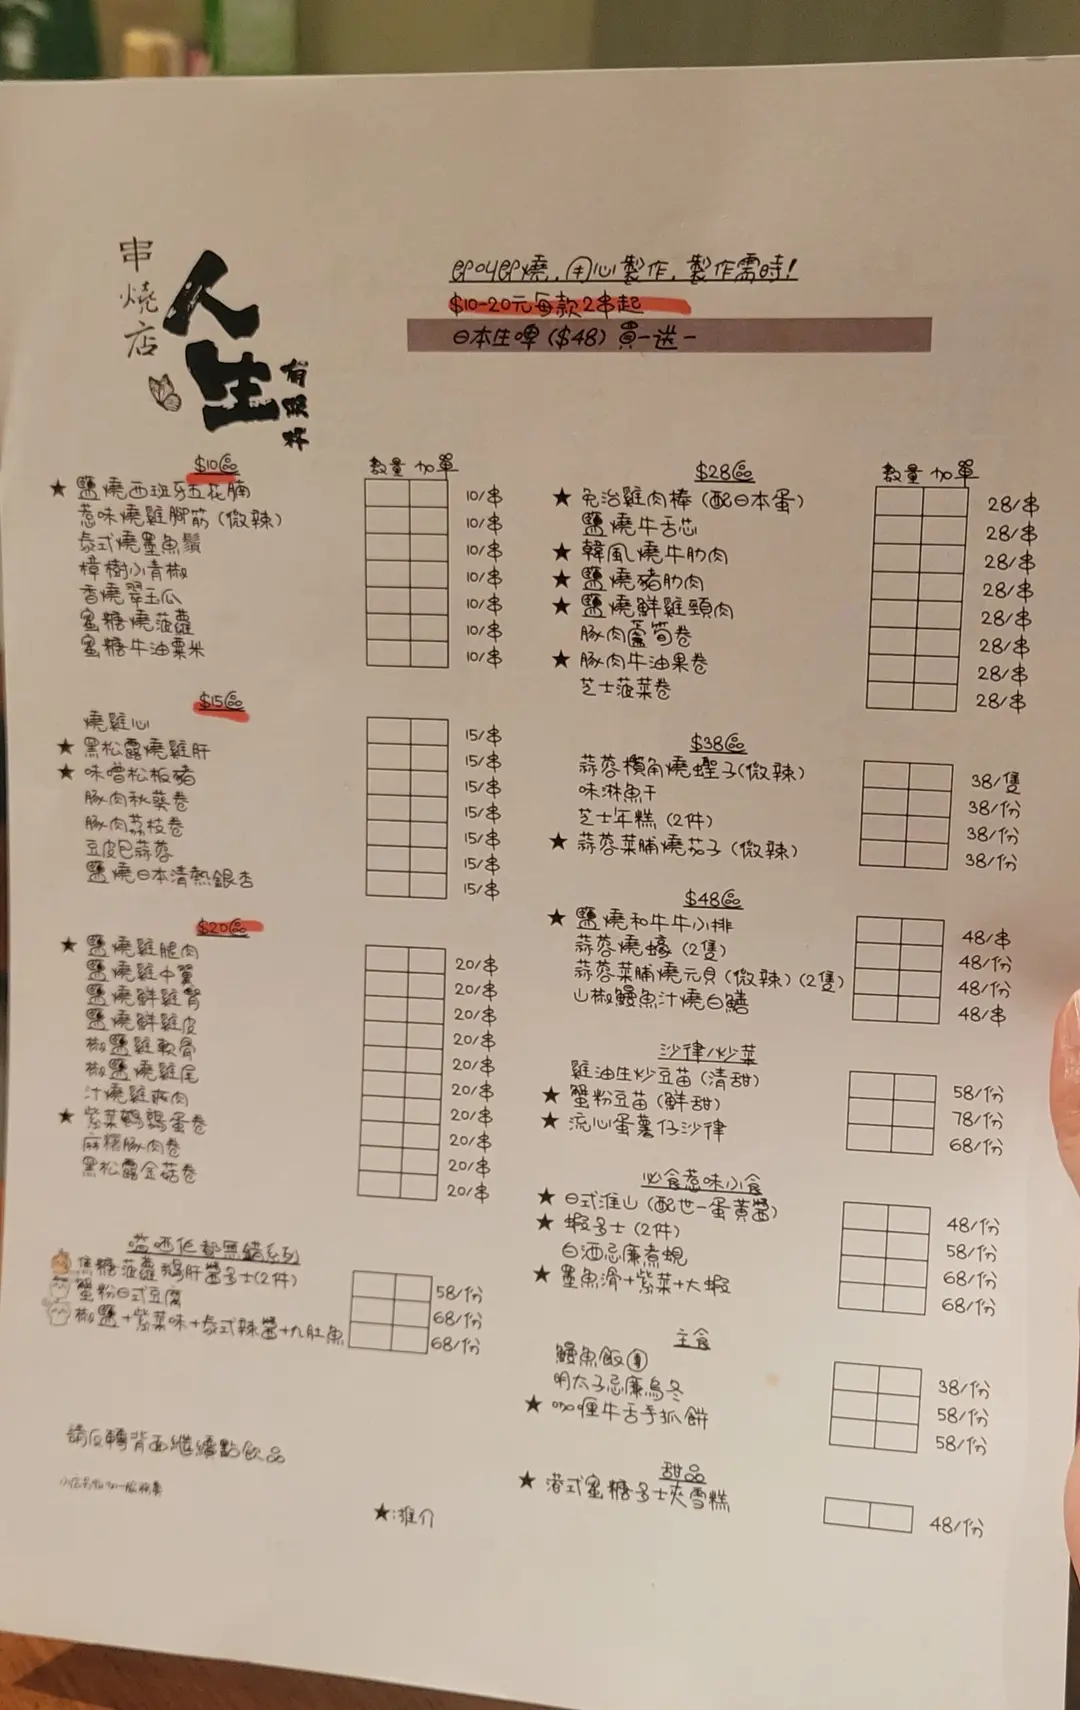 串燒店
人生
有限杯
即叫即燒，用心製作，製作需時！
$10-20元每款2串起
日本生啤（$48）買一送一
$10區
數量 加單
★ 鹽燒西班牙五花腩 10/串
惹味燒雞腳筋（微辣） 10/串
泰式燒墨魚鬚 10/串
樟樹小青椒 10/串
香燒翠玉瓜 10/串
蜜糖燒菠蘿 10/串
蜜糖牛油粟米 10/串
$15區
燒雞心 15/串
★ 黑松露燒雞肝 15/串
★ 味噌松板豬 15/串
豚肉秋葵卷 15/串
豚肉荔枝卷 15/串
豆皮巴蒜蓉 15/串
鹽燒日本清熱銀杏 15/串
$20區
★ 鹽燒雞腿肉 20/串
鹽燒雞中翼 20/串
鹽燒鮮雞腎 20/串
鹽燒鮮雞皮 20/串
椒鹽雞軟骨 20/串
椒鹽燒雞尾 20/串
汁燒雞 肉 20/串
★ 紫菜鵪鶉蛋卷 20/串
麻糬豚肉卷 20/串
黑松露金菇卷 20/串
嗌哂佢都無錯系列
焦糖菠蘿鵝肝醬多士(2件) 58/份
蟹粉日式豆腐 68/份
椒鹽+紫菜味+泰式辣醬+九肚魚 68/份
請反轉背面繼續點飲品
★:推介
$28區
數量 加單
★ 免治雞肉棒（配日本蛋） 28/串
鹽燒牛舌芯 28/串
★ 韓風燒牛肋肉 28/串
★ 鹽燒豬肋肉 28/串
★ 鹽燒鮮雞頸肉 28/串
豚肉蘆筍卷 28/串
★ 豚肉牛油果卷 28/串
芝士菠菜卷 28/串
$38區
蒜蓉欖角燒蟶子(微辣) 38/隻
味淋魚干 38/份
芝士年糕（2件） 38/份
★ 蒜蓉菜脯燒茄子（微辣） 38/份
$48區
★ 鹽燒和牛牛小排 48/串
蒜蓉燒蠔（2隻） 48/份
蒜蓉菜脯燒元貝（微辣）（2隻） 48/份
山椒鰻魚汁燒白鱔 48/串
沙律/炒菜
雞油生炒豆苗（清甜） 58/份
★ 蟹粉豆苗（鮮甜） 78/份
★ 流心蛋薯仔沙律 68/份
必食惹味小食
★ 日式淮山（配世一蛋黃醬） 48/份
★ 蝦多士（2件） 58/份
白酒忌廉煮蜆 68/份
★ 墨魚滑+紫菜+大蝦 68/份
主食
鰻魚飯 38/份
明太子忌廉烏冬 58/份
★ 咖喱牛舌手抓餅 58/份
甜品
★ 港式蜜糖多士夾雪糕 48/份